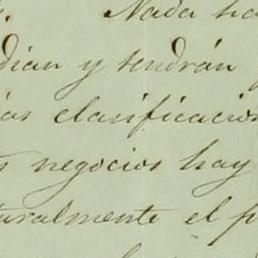 Nada ha
dian y tendrán
as clasificacion
s negocios hay
turalmente el p